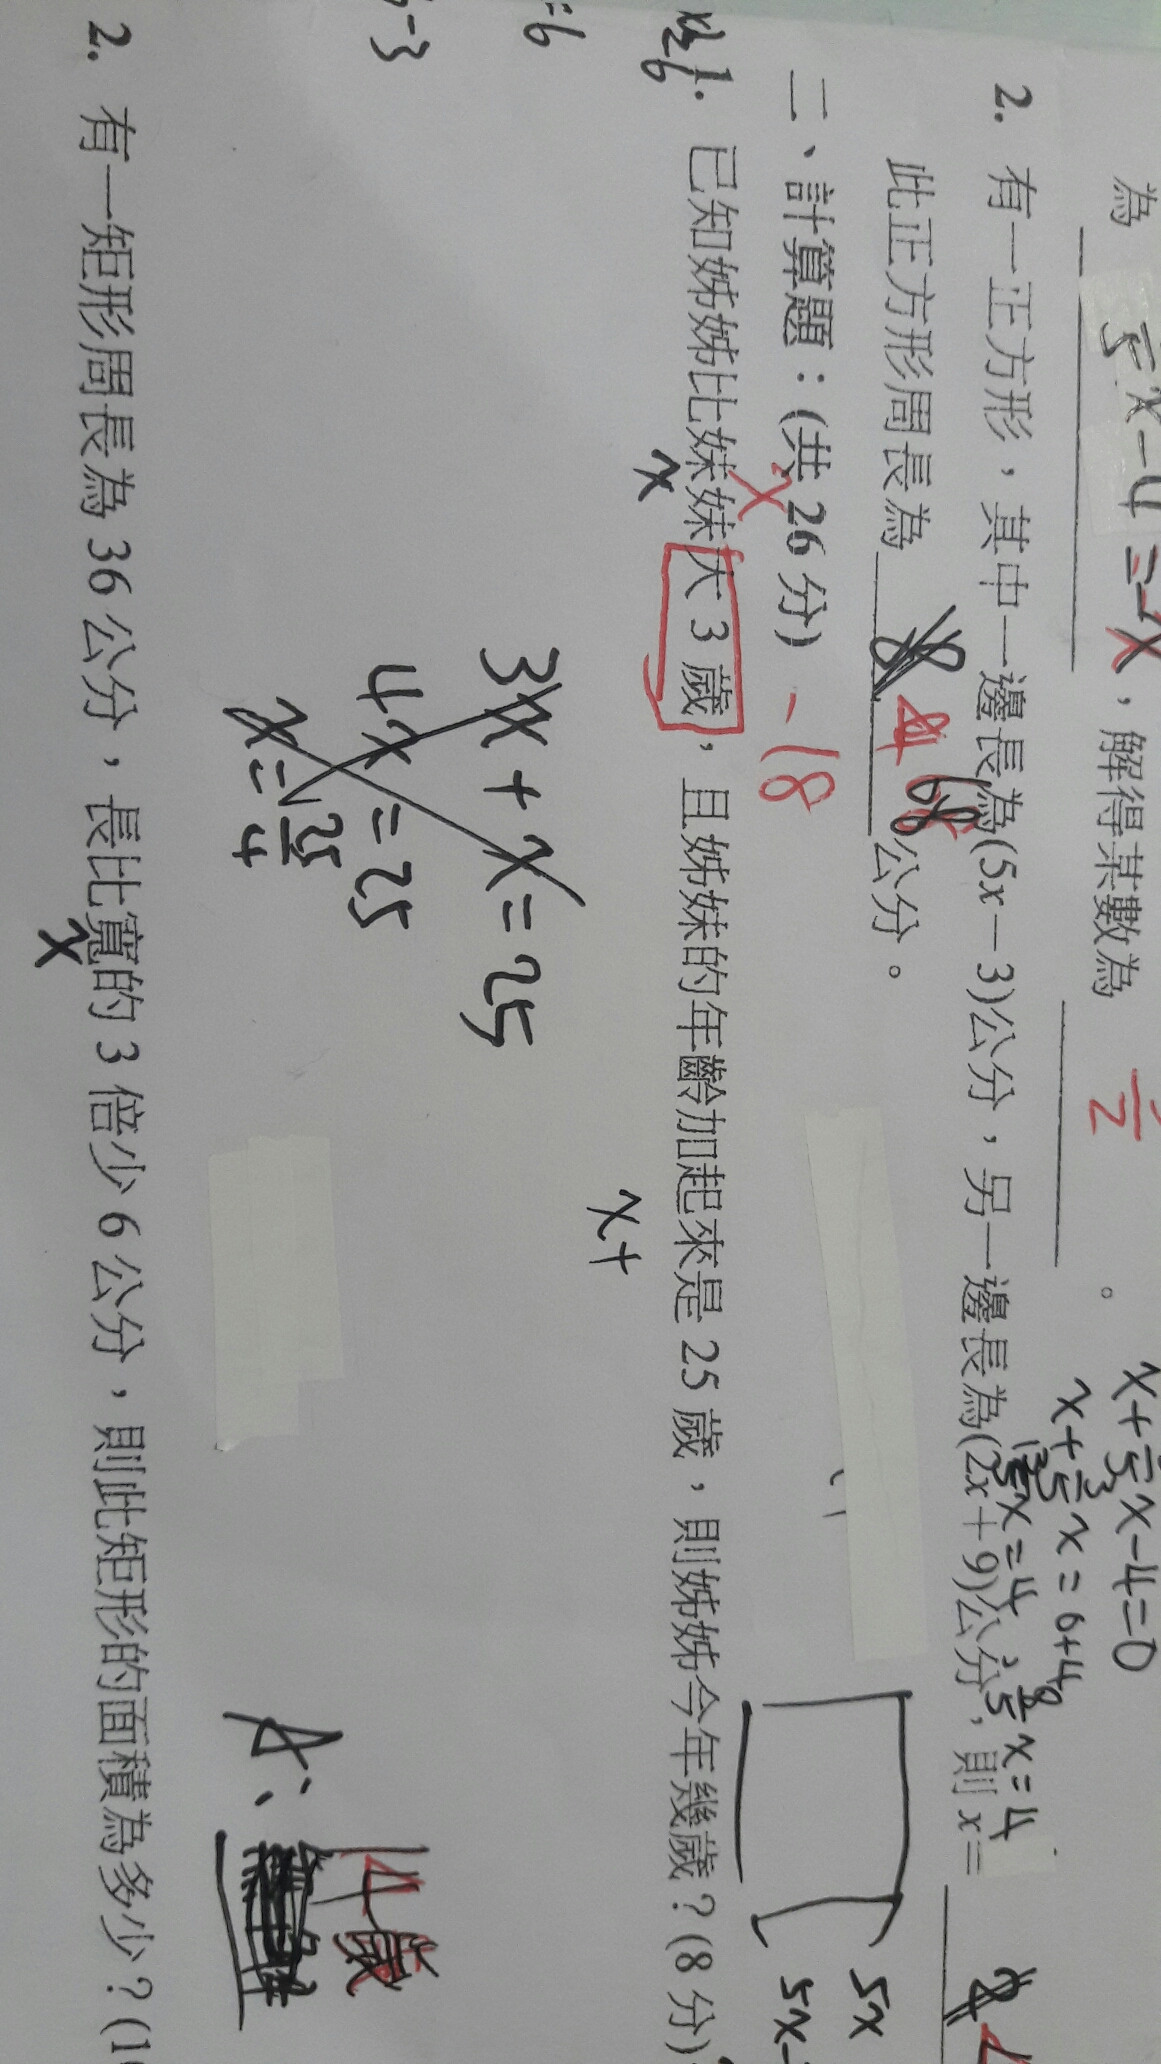 為 5x-4=-x，解得某數為 。
x+5x-4=0
x+3/5x=0+4
x=4
8/5x=4
2. 有一正方形，其中一邊長為(5x－3)公分，另一邊長為(2x＋9)公分，則x＝
此正方形周長為 68 公分。
5x
5x-
二、計算題：(共26分) -18
1. 已知姊姊比妹妹大3歲，且姊妹的年齡加起來是25歲，則姊姊今年幾歲？(8分)
x
x+
3x+x=25
4x=25
x=25/4
A、
14歲
2. 有一矩形周長為36公分，長比寬的3倍少6公分，則此矩形的面積為多少？(1
x
=6
-3